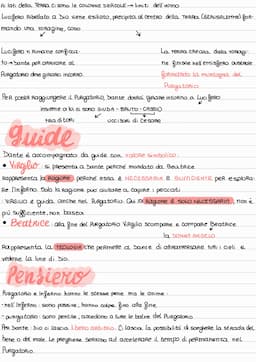 ai lati della Terra ci sono le colonne d'Ercole → limiti dell'uomo
Lucifero ribellato a Dio viene esiliato, precipita al centro della Terra (Gerusalemme) for-
mando una voragine, cono
Lucifero rimane conficca- La terra cacciata dalla voragi-
to → Dante per arrivare al ne finisce nell'emisfero australe
Purgatorio deve girargli intorno. formando la montagna del
Purgatorio
Per poter raggiungere il Purgatorio, Dante dovrà girare intorno a Lucifero
insieme a lui ci sono GIUDA - BRUTO - CASSIO
traditori uccisori di Cesare
Guide
Dante è accompagnato da guide con valore simbolico.
• Virgilio: si presenta a Dante perché mandato da Beatrice.
Rappresenta la Ragione perché essa è NECESSARIA E SUFFICIENTE per esplora-
re l'Inferno. Solo la ragione può aiutare a capire i peccati
Virgilio è guida anche nel Purgatorio. Qui la Ragione è solo NECESSARIA, non è
più sufficiente, non basta.
• Beatrice: alla fine del Purgatorio Virgilio scompare e compare Beatrice
la donna amata
Rappresenta la TEOLOGIA che permette a Dante di attraversare tutti i cieli e
vedere la luce di Dio.
Pensiero
Purgatorio e Inferno hanno le stesse pene ma le anime:
- nell'Inferno: sono passive, hanno colpe fino alla fine.
- purgatorio: sono pentite, accedono a tutte le balze del Purgatorio.
Per Dante: Dio ci lascia libero arbitrio. Ci lascia la possibilità di scegliere la strada del
bene o del male. Le preghiere servono ad accelerare il tempo di permanenza nel
Purgatorio.